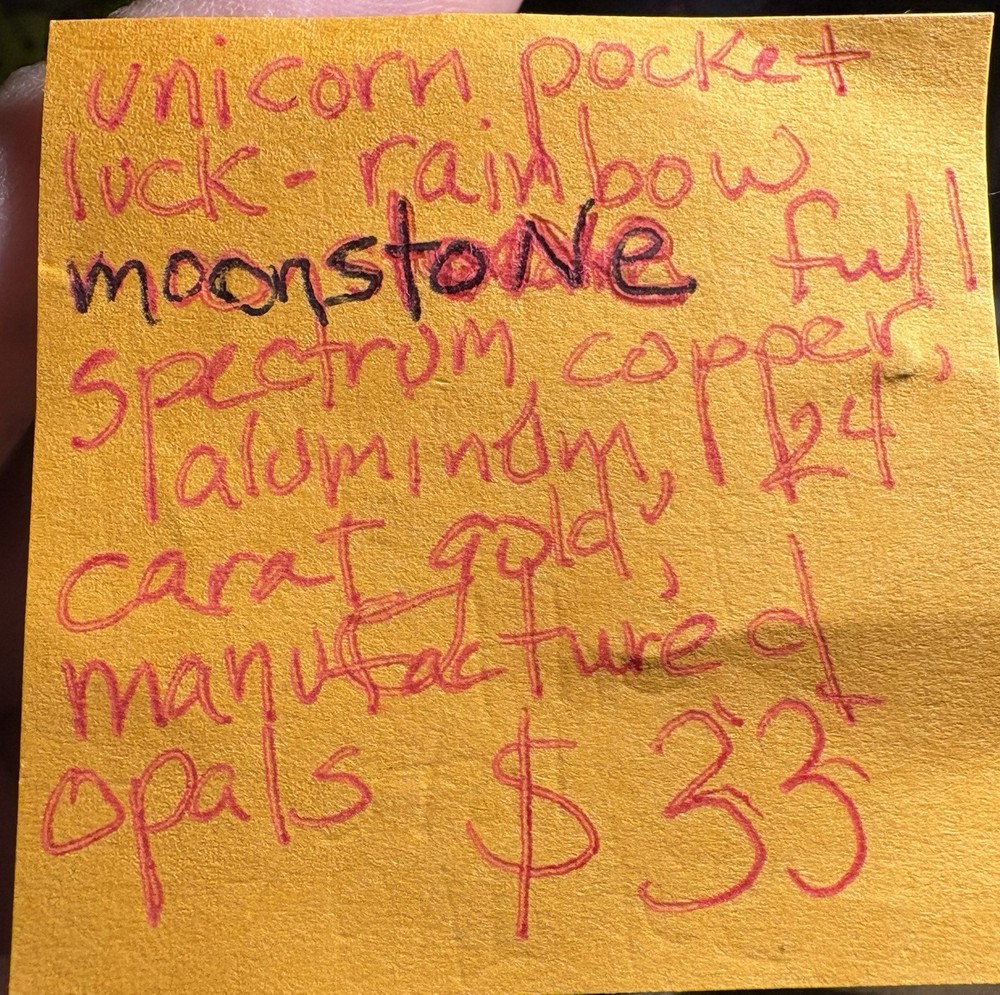 unicorn pocket
luck - rainbow
moonstoNe full
spectrum, copper,
aluminum, 24
carat gold,
manufactured
opals $33